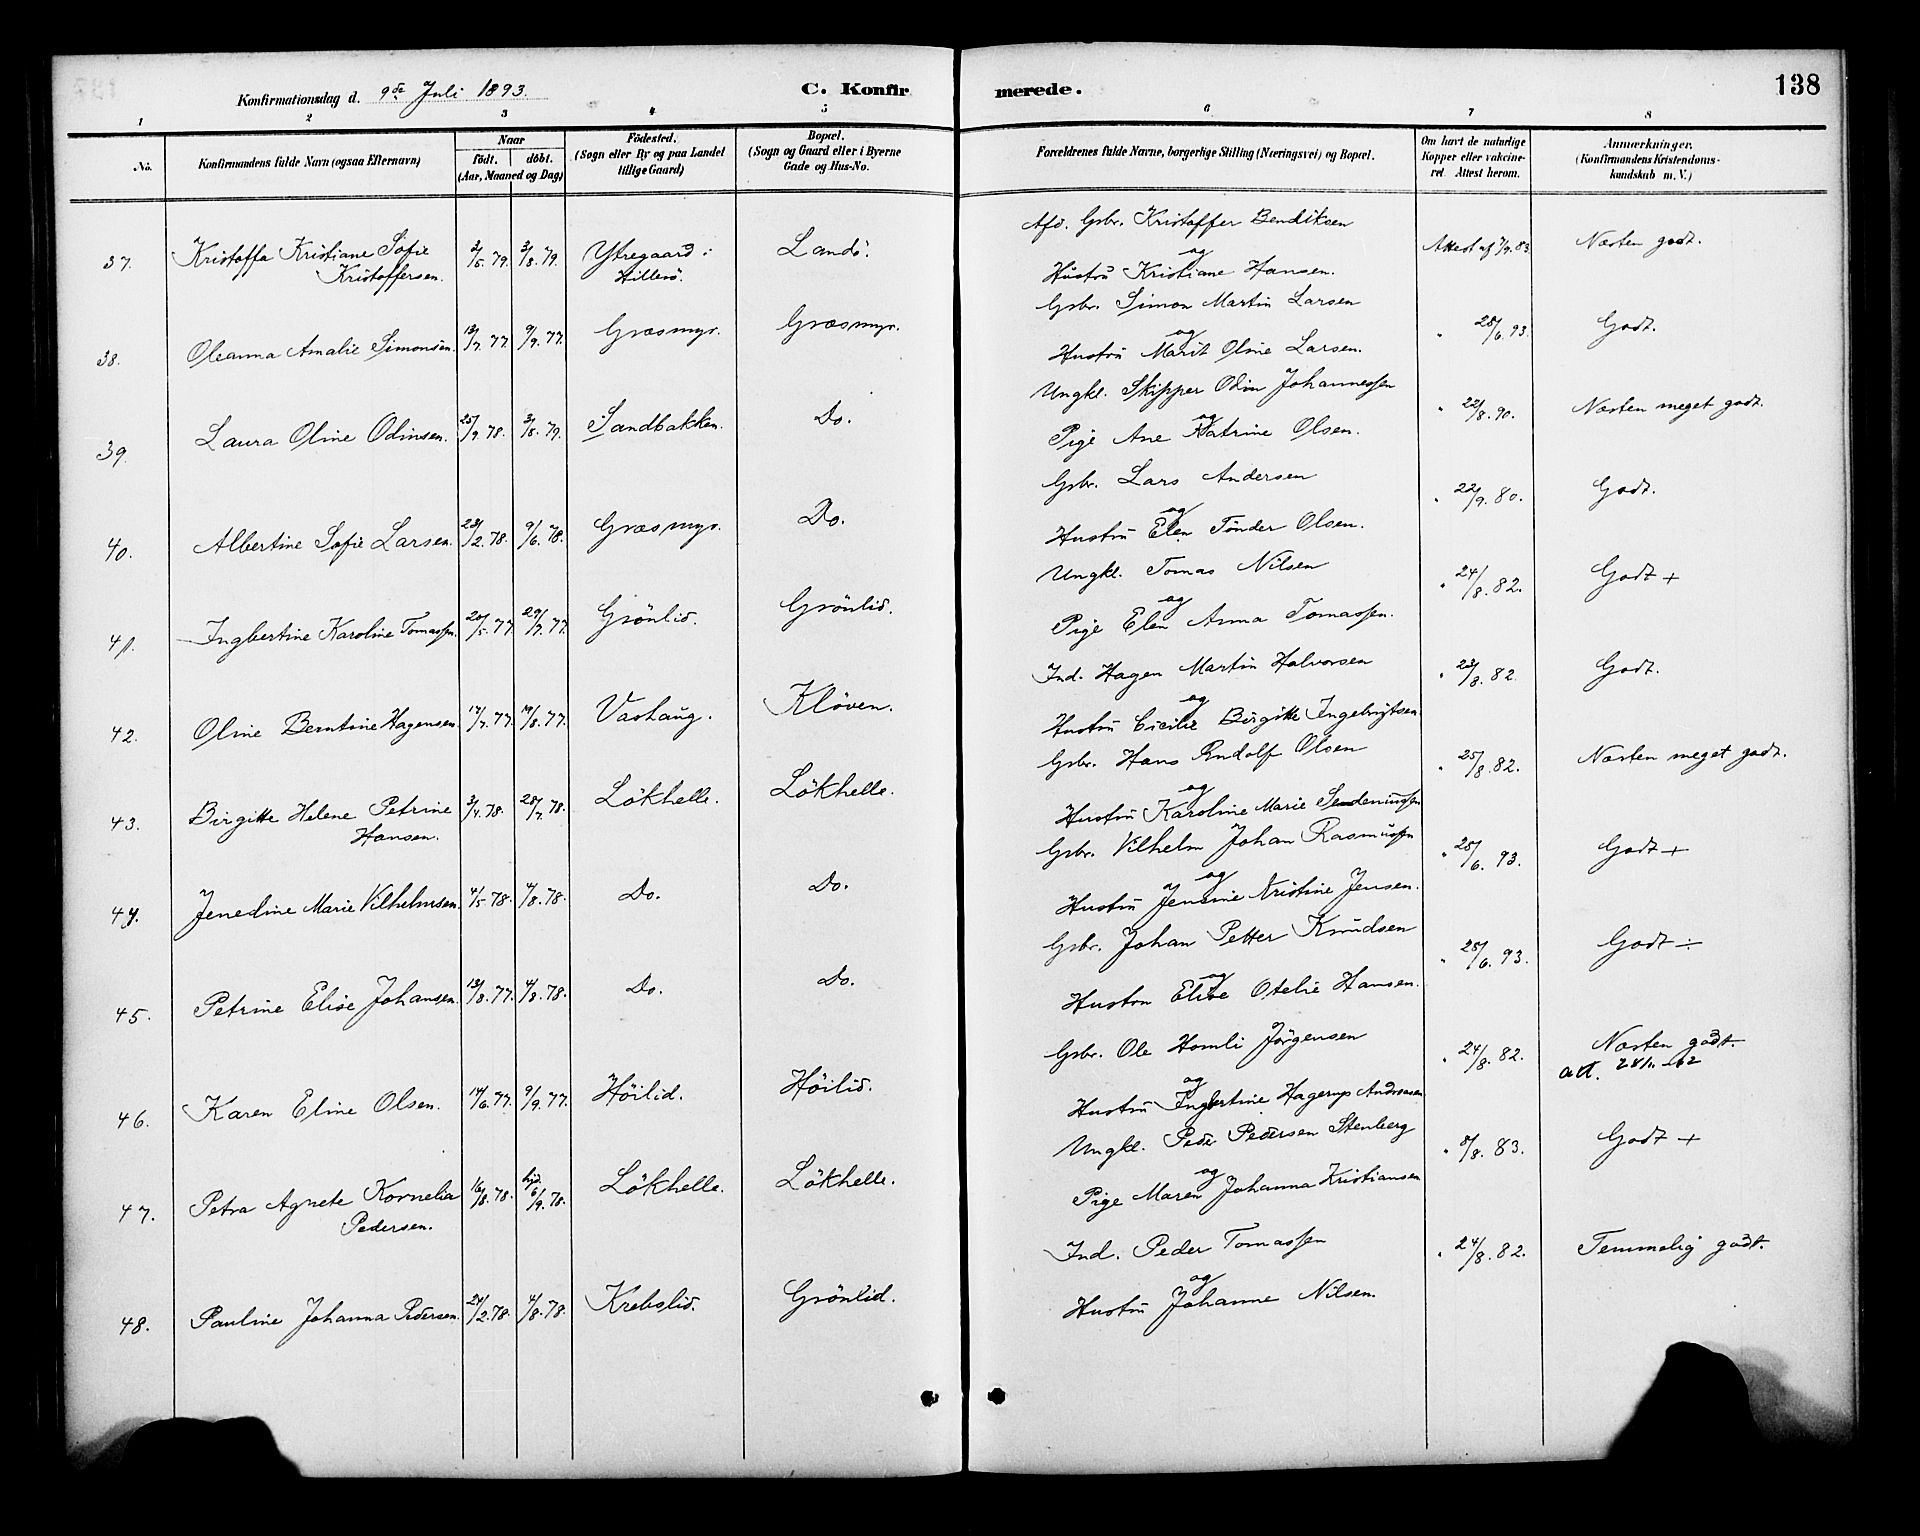 Konfirmationsdag d. 9de Juli 1893.
C. Konfirmerede.
138
1 2 3 4 5 6 7 8
No.
Konfirmandens fulde Navn (ogsaa Efternavn)
Naar
født. døbt.
(Aar, Maaned og Dag)
Födested.
(Sogn eller By og paa Landet
tillige Gaard)
Bopæl.
(Sogn og Gaard eller i Byerne
Gade og Hus-No.
Forældrenes fulde Navne, borgerlige Stilling (Næringsvei) og Bopæl.
Om havt de naturlige
Kopper eller vakcine-
ret. Attest herom.
Anmærkninger.
(Konfirmandens Kristendoms-
kundskab m. V.)
37. Kristoffa Kristiane Sofie 2/5.79. 3/8.79. Ytregaard i Landö.
Kristoffersen. Hillesö.
Afd. Gsbr. Kristoffer Bendiksen
og
Hustru Kristiane Hansen.
Attest af 7/9.83. Næsten godt.
38. Oleanna Amalie Simonsen. 13/7.77. 9/9.77. Græsmyr. Græsmyr.
Gsbr. Simon Martin Larsen
og
Hustru Marit Oline Larsen.
" 28/6.93. Godt.
39. Laura Oline Odinsen. 25/9.78. 3/8.79. Sandbakken. Do.
Ungkl. Skipper Odin Johannessen
og
Pige Ane Katrine Olsen.
" 22/8.90. Næsten meget godt.
40. Albertine Sofie Larsen. 23/2.78. 9/6.78. Græsmyr. Do.
Gsbr. Lars Andersen
og
Hustru Elen Tönder Olsen.
" 22/9.80. Godt.
41. Ingbertine Karoline Tomassen. 20/5.77. 29/7.77. Grönlid. Grönlid.
Ungkl. Tomas Nilsen
og
Pige Elen Anna Tomassen.
" 24/8.82. Godt +
42. Oline Berntine Hagensen. 17/7.77. 19/8.77. Vashaug. Klöven.
Ind. Hagen Martin Halvorsen
og
Hustru Cicilie Birgitte Ingebrigtsen.
" 23/8.82. Godt.
43. Birgitte Helene Petrine 3/4.78. 28/7.78. Lökhelle. Lökhelle.
Hansen.
Gsbr. Hans Rudolf Olsen
og
Hustru Karoline Marie
" 25/8.82. Næsten meget godt.
44. Jenedine Marie Vilhelmsen. 4/5.78. 4/8.78. Do. Do.
Gsbr. Vilhelm Johan Rasmussen
og
Hustru Jensine Kristine Jensen.
" 28/6.93. Godt +
45. Petrine Elise Johansen. 13/8.77. 4/8.78. Do. Do.
Gsbr. Johan Petter Knudsen
og
Hustru Elise Otelie Hansen.
" 28/6.93. Godt ÷
46. Karen Eline Olsen. 14/6.77. 9/9.77. Höilid. Höilid.
Gsbr. Ole Homli Jörgensen
og
Hustru Ingbertine Hagerup Andreasen
" 24/8.82. Næsten godt.
att.
47. Petra Agnete Kornelia 16/8.78. hjd. 6/9.78. Lökhelle. Lökhelle.
Pedersen.
Ungkl. Peder Pedersen Stenberg
og
Pige Maren Johanna Kristiansen
" 8/8.83. Godt +
48. Pauline Johanna Pedersen. 24/2.78. 4/8.78. Krebslid. Grönlid.
Ind. Peder Tomassen
og
Hustru Johanne Nilsen.
" 24/8.82. Temmelig godt.